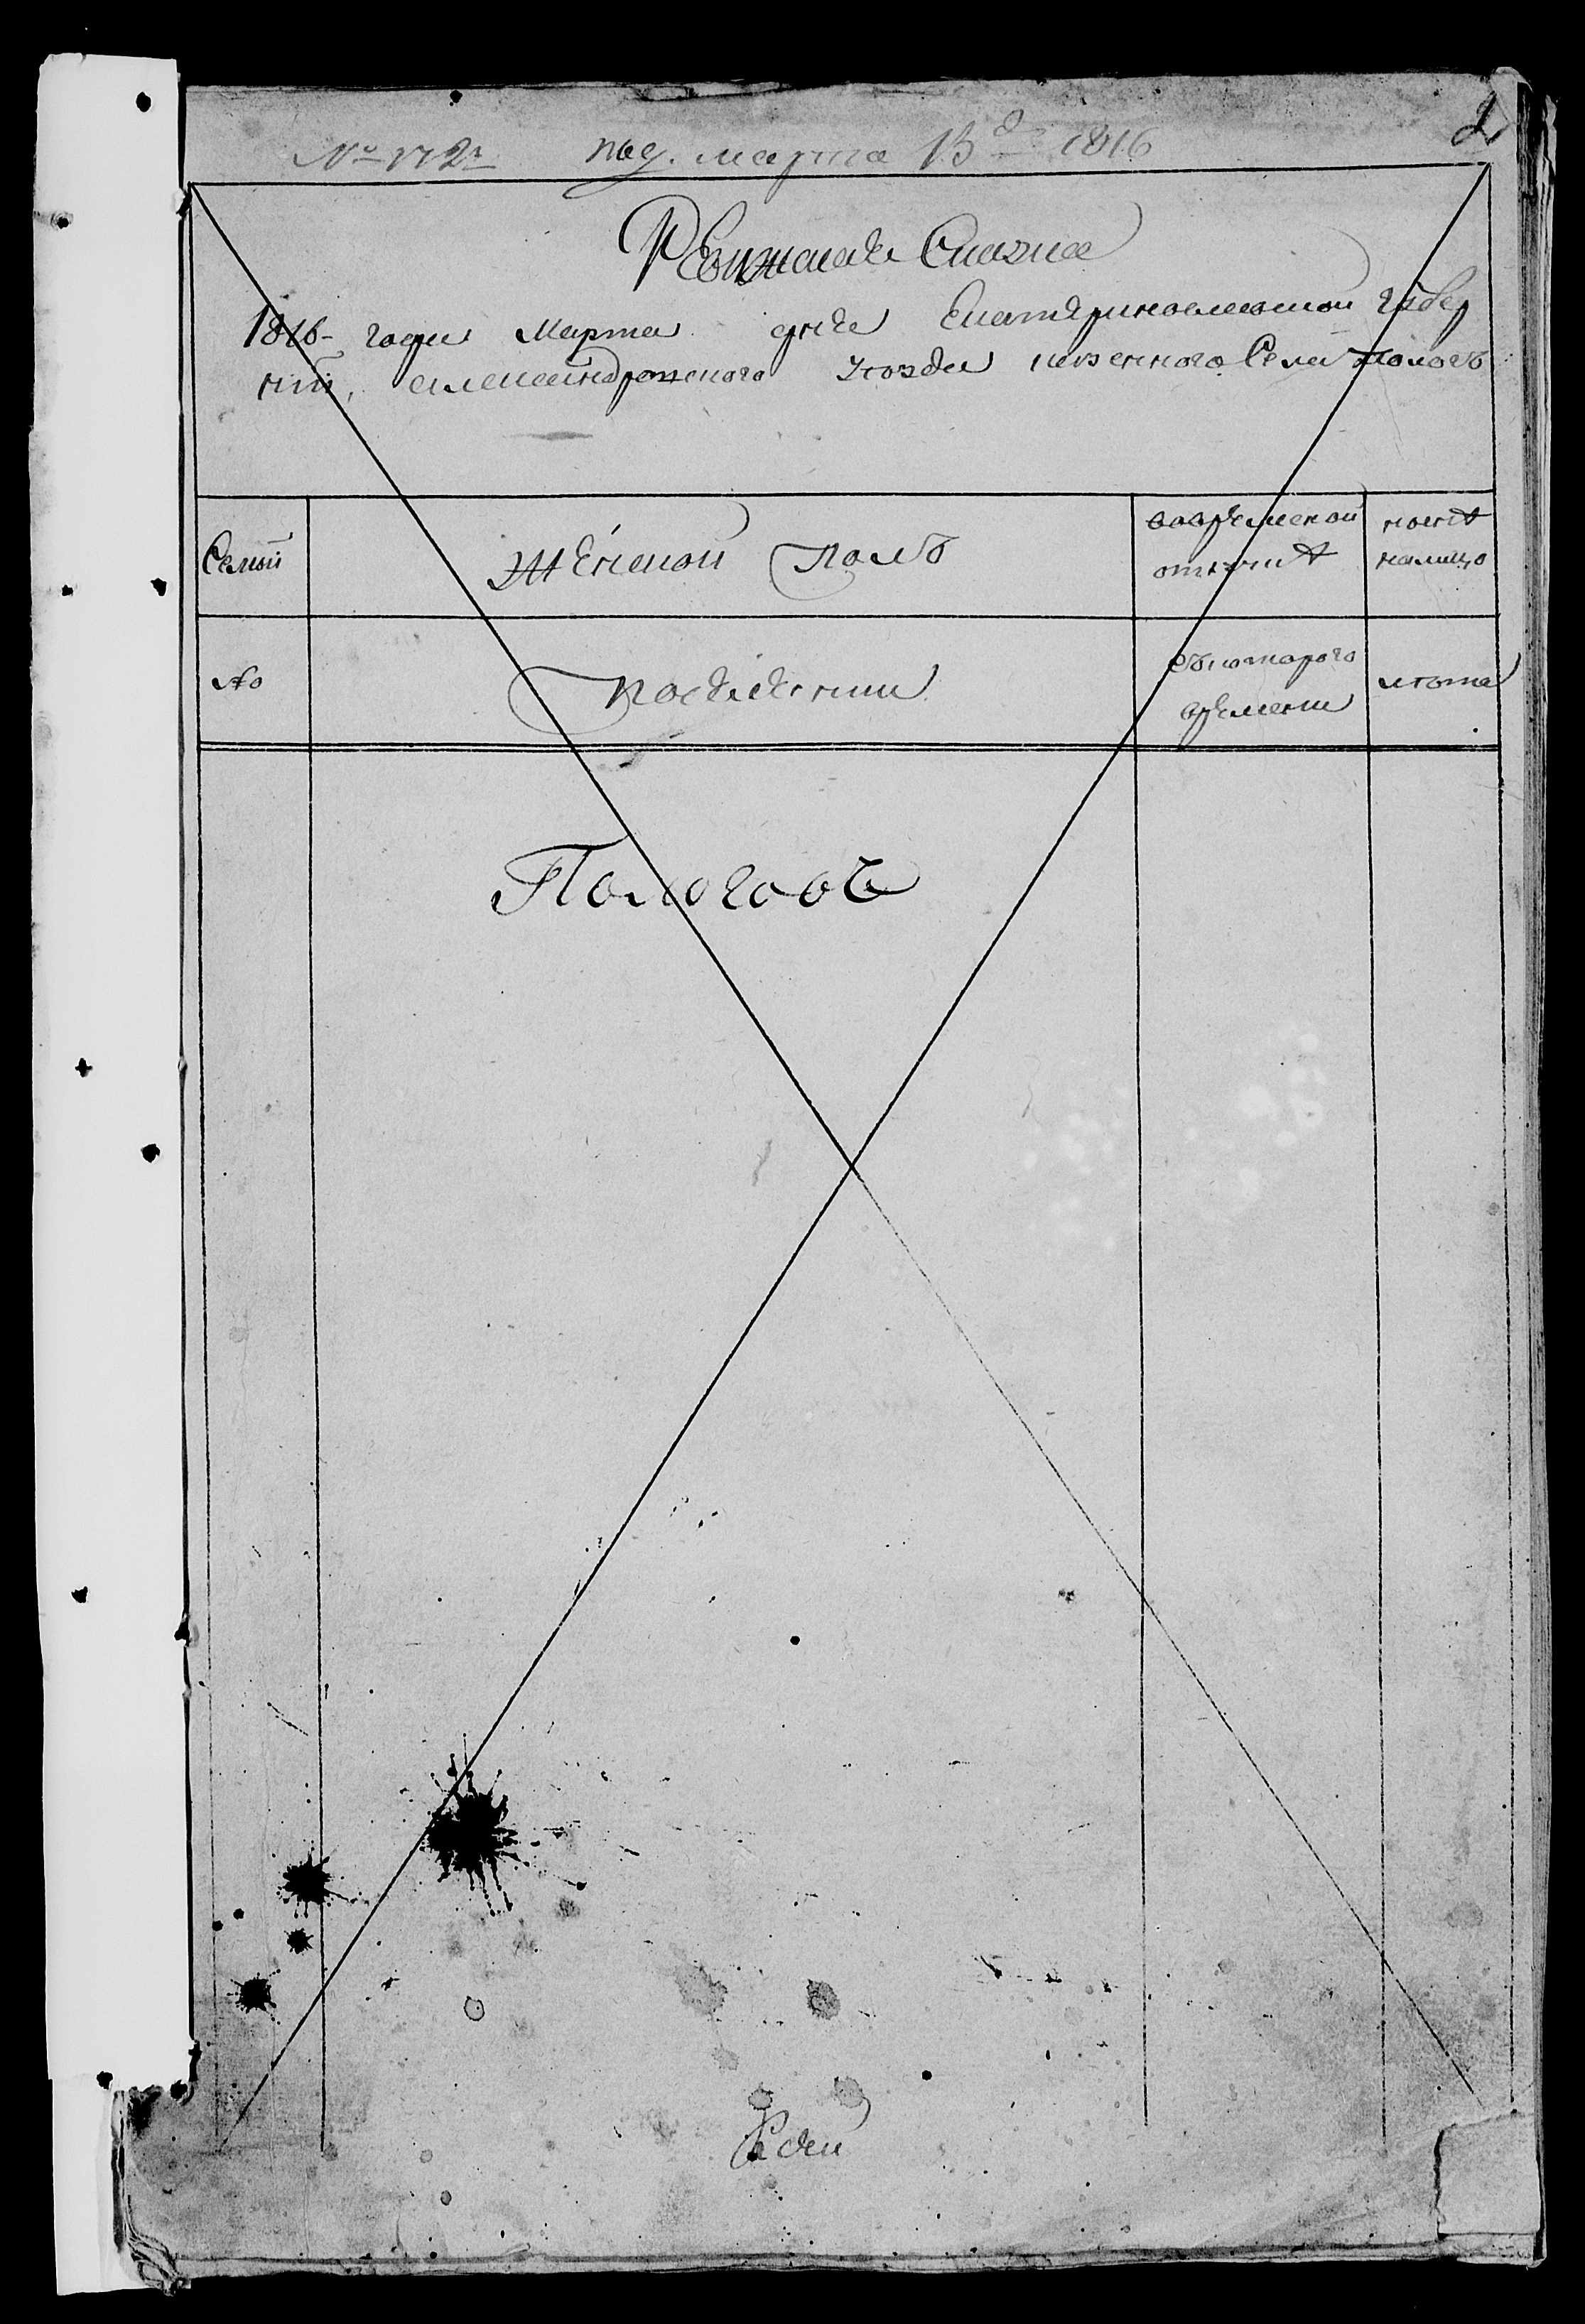 № 172й под. марта 13го 1816
2
Ревижская Сказка
1816- года Марта дня Екатеринославской губер
нии, александровского уезда казенного Села Пологъ
Семьи
Женской Полъ
вовременной
отлучке
ныне
налицо
№
Поседяении
Съ котораго
времени
лета
Пологовъ